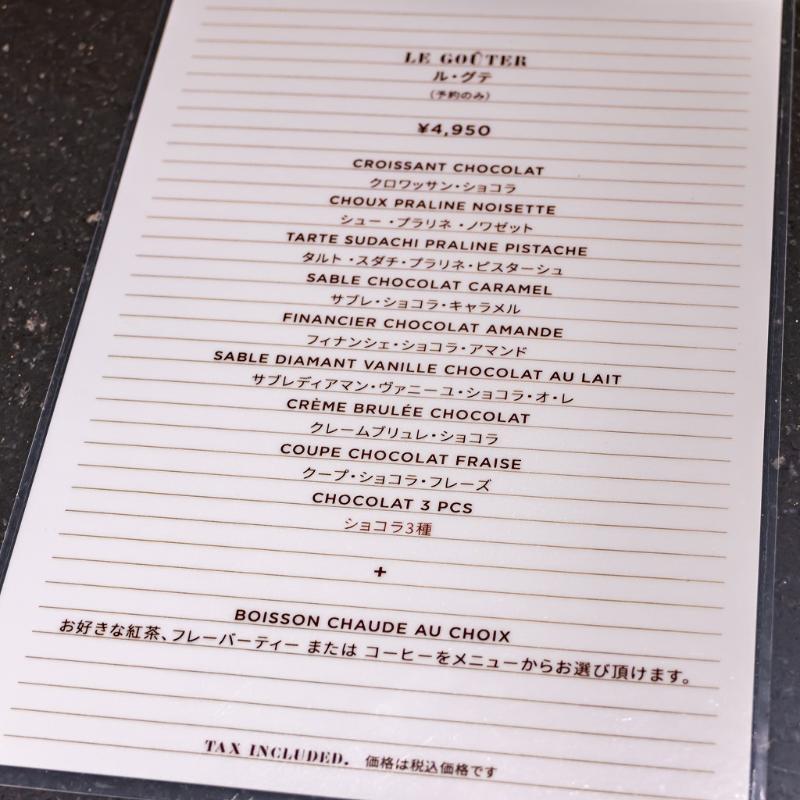 LE GOÛTER
ル・グテ
(予約のみ)
¥4,950
CROISSANT CHOCOLAT
クロワッサン・ショコラ
CHOUX PRALINE NOISETTE
シュー・プラリネ・ノワゼット
TARTE SUDACHI PRALINE PISTACHE
タルト・スダチ・プラリネ・ピスターシュ
SABLE CHOCOLAT CARAMEL
サブレ・ショコラ・キャラメル
FINANCIER CHOCOLAT AMANDE
フィナンシェ・ショコラ・アマンド
SABLE DIAMANT VANILLE CHOCOLAT AU LAIT
サブレディアマン・ヴァニーユ・ショコラ・オ・レ
CRÈME BRULÉE CHOCOLAT
クレームブリュレ・ショコラ
COUPE CHOCOLAT FRAISE
クープ・ショコラ・フレーズ
CHOCOLAT 3 PCS
ショコラ3種
+
BOISSON CHAUDE AU CHOIX
お好きな紅茶、フレーバーティー または コーヒーをメニューからお選び頂けます。
TAX INCLUDED. 価格は税込価格です